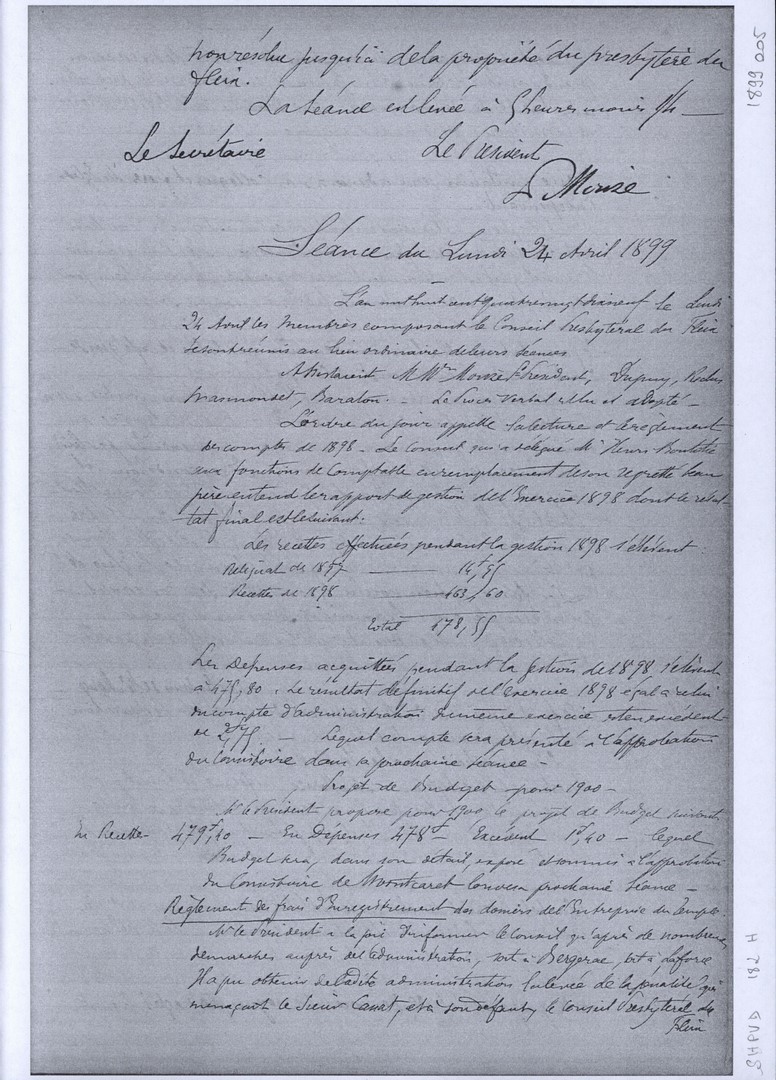 non résolu jusqu'ici de la propriété du presbytère du
Fleix.
La Séance est levée à 5 heures moins 1/4
Le Secrétaire Le Président
Mouze
Séance du Lundi 24 Avril 1899
L'an mil huit cent quatre vingt dix neuf le Lundi
24 Avril les Membres composant le Conseil Presbytéral du Fleix
se sont réunis au lieu ordinaire de leurs séances
Assistaient M Mrs Mouze Président, Dupuy, Rochus
Baralon. - Le Procès Verbal est lu et adopté -
L'ordre du jour appelle la lecture et le règlement
des comptes de 1898 - Le Conseil qui a délégué Mr Henri
aux fonctions de Comptable en remplacement de son regretté beau
père entend le rapport de gestion de l'Exercice 1898 dont le résul
tat final est le suivant:
Les recettes effectuées pendant la gestion 1898 s'élèvent:
Reliquat de 1897
Recettes de 1898 463,60
Total 478,55
Les Dépenses acquittées pendant la gestion de 1898 s'élèvent
à 475,80. Le résultat définitif de l'exercice 1898 égal à celui
du compte d'administration du même exercice est en excédent
de 2f,75 - Lequel compte sera présenté à l'approbation
du Consistoire dans sa prochaine séance -
Projet de Budget pour 1900 -
Mr le Président propose pour 1900 le projet de Budget suivant
En Recettes 479f,40 - En Dépenses 478f Excédent 1f,40 - lequel
Budget sera, dans son détail, exposé et soumis à l'approbation
du Consistoire de Montcaret dans sa prochaine séance -
Règlement des frais d'Enregistrement des dossiers de l'Entreprise du Temple.
Mr le Président a la joie d'informer le Conseil qu'après de nombreuses
démarches auprès de l'administration, soit à Bergerac, soit à Laforce
Il a pu obtenir de ladite administration la levée de la pénalité qui
menaçait le Sieur Canat, et à son défaut, le Conseil Presbytéral du
Fleix
1899 005
SHPVD H 187